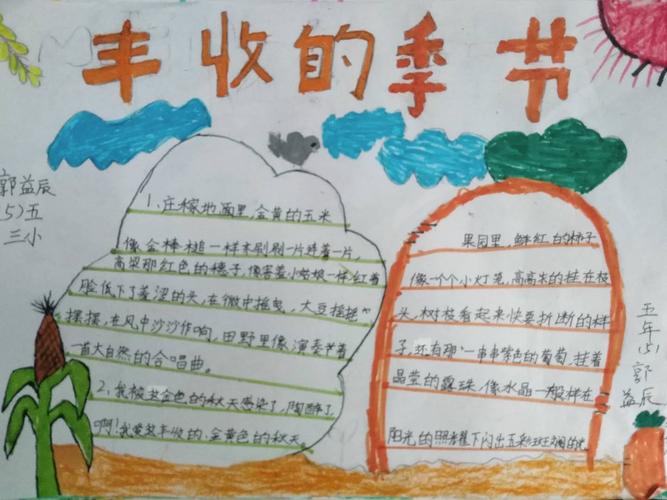 丰收的季节
郭益辰
(5)五
三小
1、庄稼地里面,金黄的玉米
像金棒槌一样本刷刷一片连着一片,
高梁那红色的穗子,像害羞小姑娘一样,红着
脸低下了羞涩的头,在微中摇曳,大豆摇摇
摆摆,在风中沙沙作响,田野里像演奏着
一首大自然的合唱曲。
2、我被这金色的秋天感染了,陶醉了
啊!我爱这丰收的、金黄色的秋天。
果园里,鲜红的柿子
像一个个小灯笼,高高的挂在枝
头,树枝看起来快要折断的样
子,还有那一串串紫色的葡萄,挂着
晶莹的露珠,像水晶一般样在
阳光的照耀下闪出五彩斑斓的光
五年(5)
郭益辰